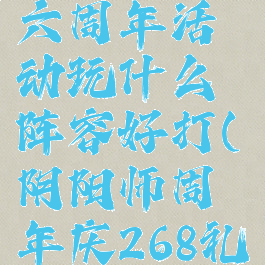 六周年活
动玩什么
阵容好打(
阴阳师周
年庆268礼